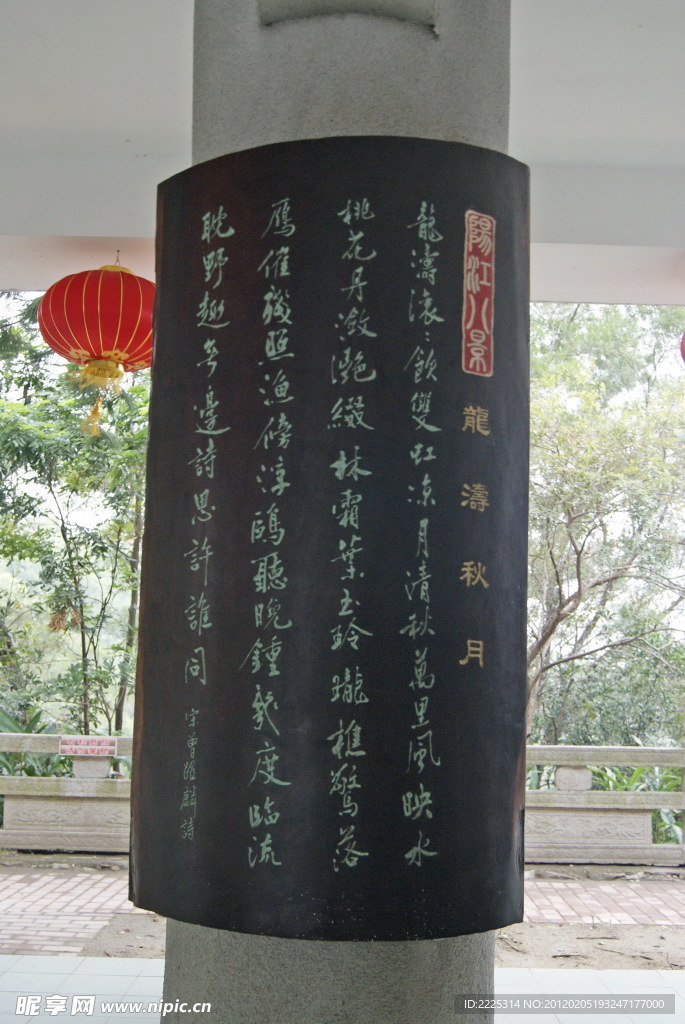 陽江八景
龍濤秋月
龍濤滾〻飲雙虹涼月清秋萬里風映水
桃花丹激灧綴林霜葉玉玲瓏樵驚落
鴈催殘照漁傍浮鷗聽晚鍾幾度臨流
耽野趣無邊詩思許誰同
宋曾 麟詩
昵享网 www.nipic.cn
ID:2225314 NO:20120205193247177000